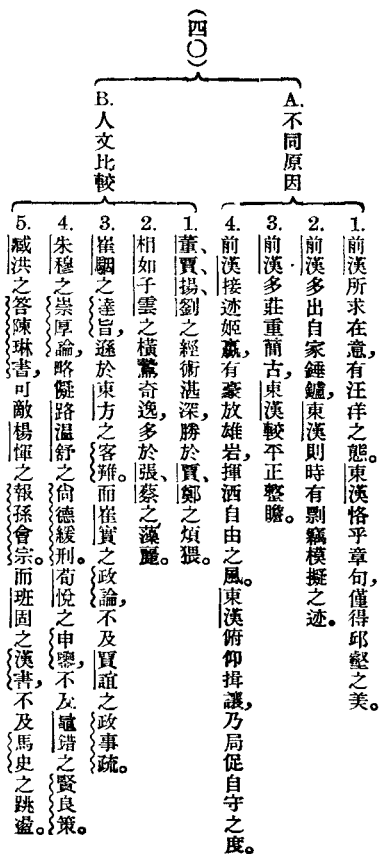 (四〇)
A. 不同原因
1. 前漢所求在意，有汪洋之態。東漢恪乎章句，僅得邱壑之美。
2. 前漢多出自家錘鑪，東漢則時有剽竊模擬之迹。
3. 前漢多莊重簡古，東漢較平正整贍。
4. 前漢接迹姬嬴，有豪放雄岩，揮洒自由之風。東漢俯仰揖讓，乃局促自守之度。
B. 人文比較
1. 董、賈、揚、劉之經術湛深，勝於賈、鄭之煩猥。
2. 相如子雲之橫鶩奇逸，多於張、蔡之漢麗。
3. 崔駰之達旨，遜於東方之客難。而崔寔之政論，不及賈誼之政事疏。
4. 朱穆之崇厚論，略儗路溫舒之尙德緩刑。荀悅之申鑒，不及鼂錯之賢良策。
5. 臧洪之答陳琳書，可敵楊惲之報孫會宗。而班固之漢書，不及馬史之跳盪。